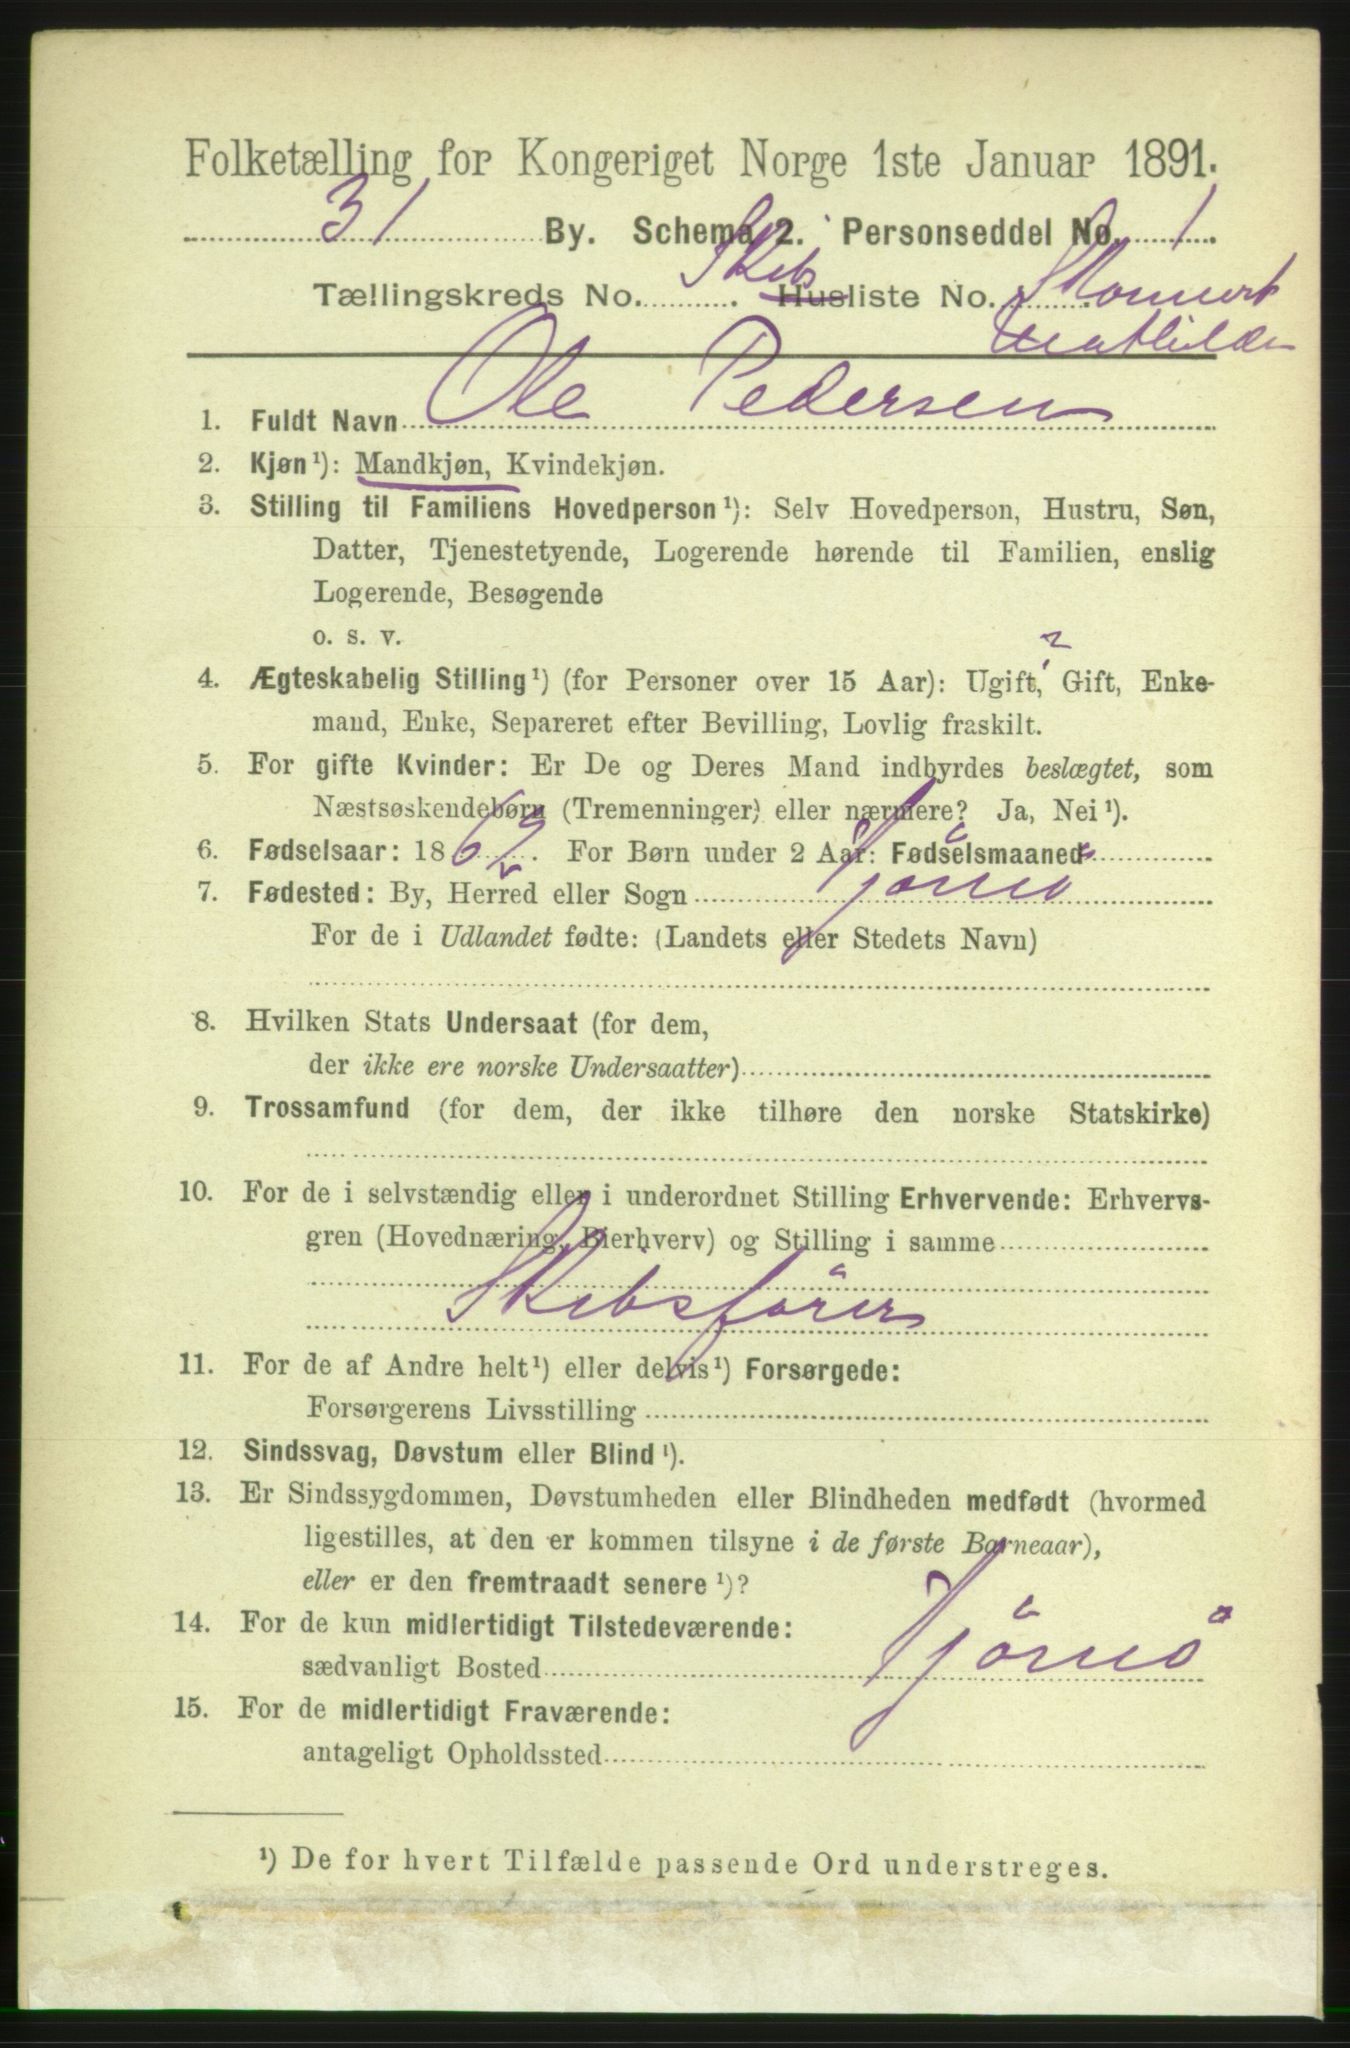 Folketælling for Kongeriget Norge 1ste Januar 1891.
31 By. Schema 2. Personseddel No. 1
Tællingskreds No. Skibs Husliste No.
Mathilde
1. Fuldt Navn Ole Pedersen
2. Kjøn¹): Mandkjøn, Kvindekjøn.
3. Stilling til Familiens Hovedperson¹): Selv Hovedperson, Hustru, Søn,
Datter, Tjenestetyende, Logerende hørende til Familien, enslig
Logerende, Besøgende
o. s. v.
?
4. Ægteskabelig Stilling¹) (for Personer over 15 Aar): Ugift, Gift, Enke-
mand, Enke, Separeret efter Bevilling, Lovlig fraskilt.
5. For gifte Kvinder: Er De og Deres Mand indbyrdes beslægtet, som
Næstsøskendebørn (Tremenninger) eller nærmere? Ja, Nei¹).
6. Fødselsaar: 1862. For Børn under 2 Aar: Fødselsmaaned
7. Fødested: By, Herred eller Sogn Tjömö
For de i Udlandet fødte: (Landets eller Stedets Navn)
8. Hvilken Stats Undersaat (for dem,
der ikke ere norske Undersaatter)
9. Trossamfund (for dem, der ikke tilhøre den norske Statskirke)
10. For de i selvstændig eller i underordnet Stilling Erhvervende: Erhvervs-
gren (Hovednæring, Bierhverv) og Stilling i samme
Skibsförer
11. For de af Andre helt¹) eller delvis¹) Forsørgede:
Forsørgerens Livsstilling
12. Sindssvag, Døvstum eller Blind¹).
13. Er Sindssygdommen, Døvstumheden eller Blindheden medfødt (hvormed
ligestilles, at den er kommen tilsyne i de første Barneaar),
eller er den fremtraadt senere¹)?
14. For de kun midlertidigt Tilstedeværende:
sædvanligt Bosted Tjömö
15. For de midlertidigt Fraværende:
antageligt Opholdssted
¹) De for hvert Tilfælde passende Ord understreges.